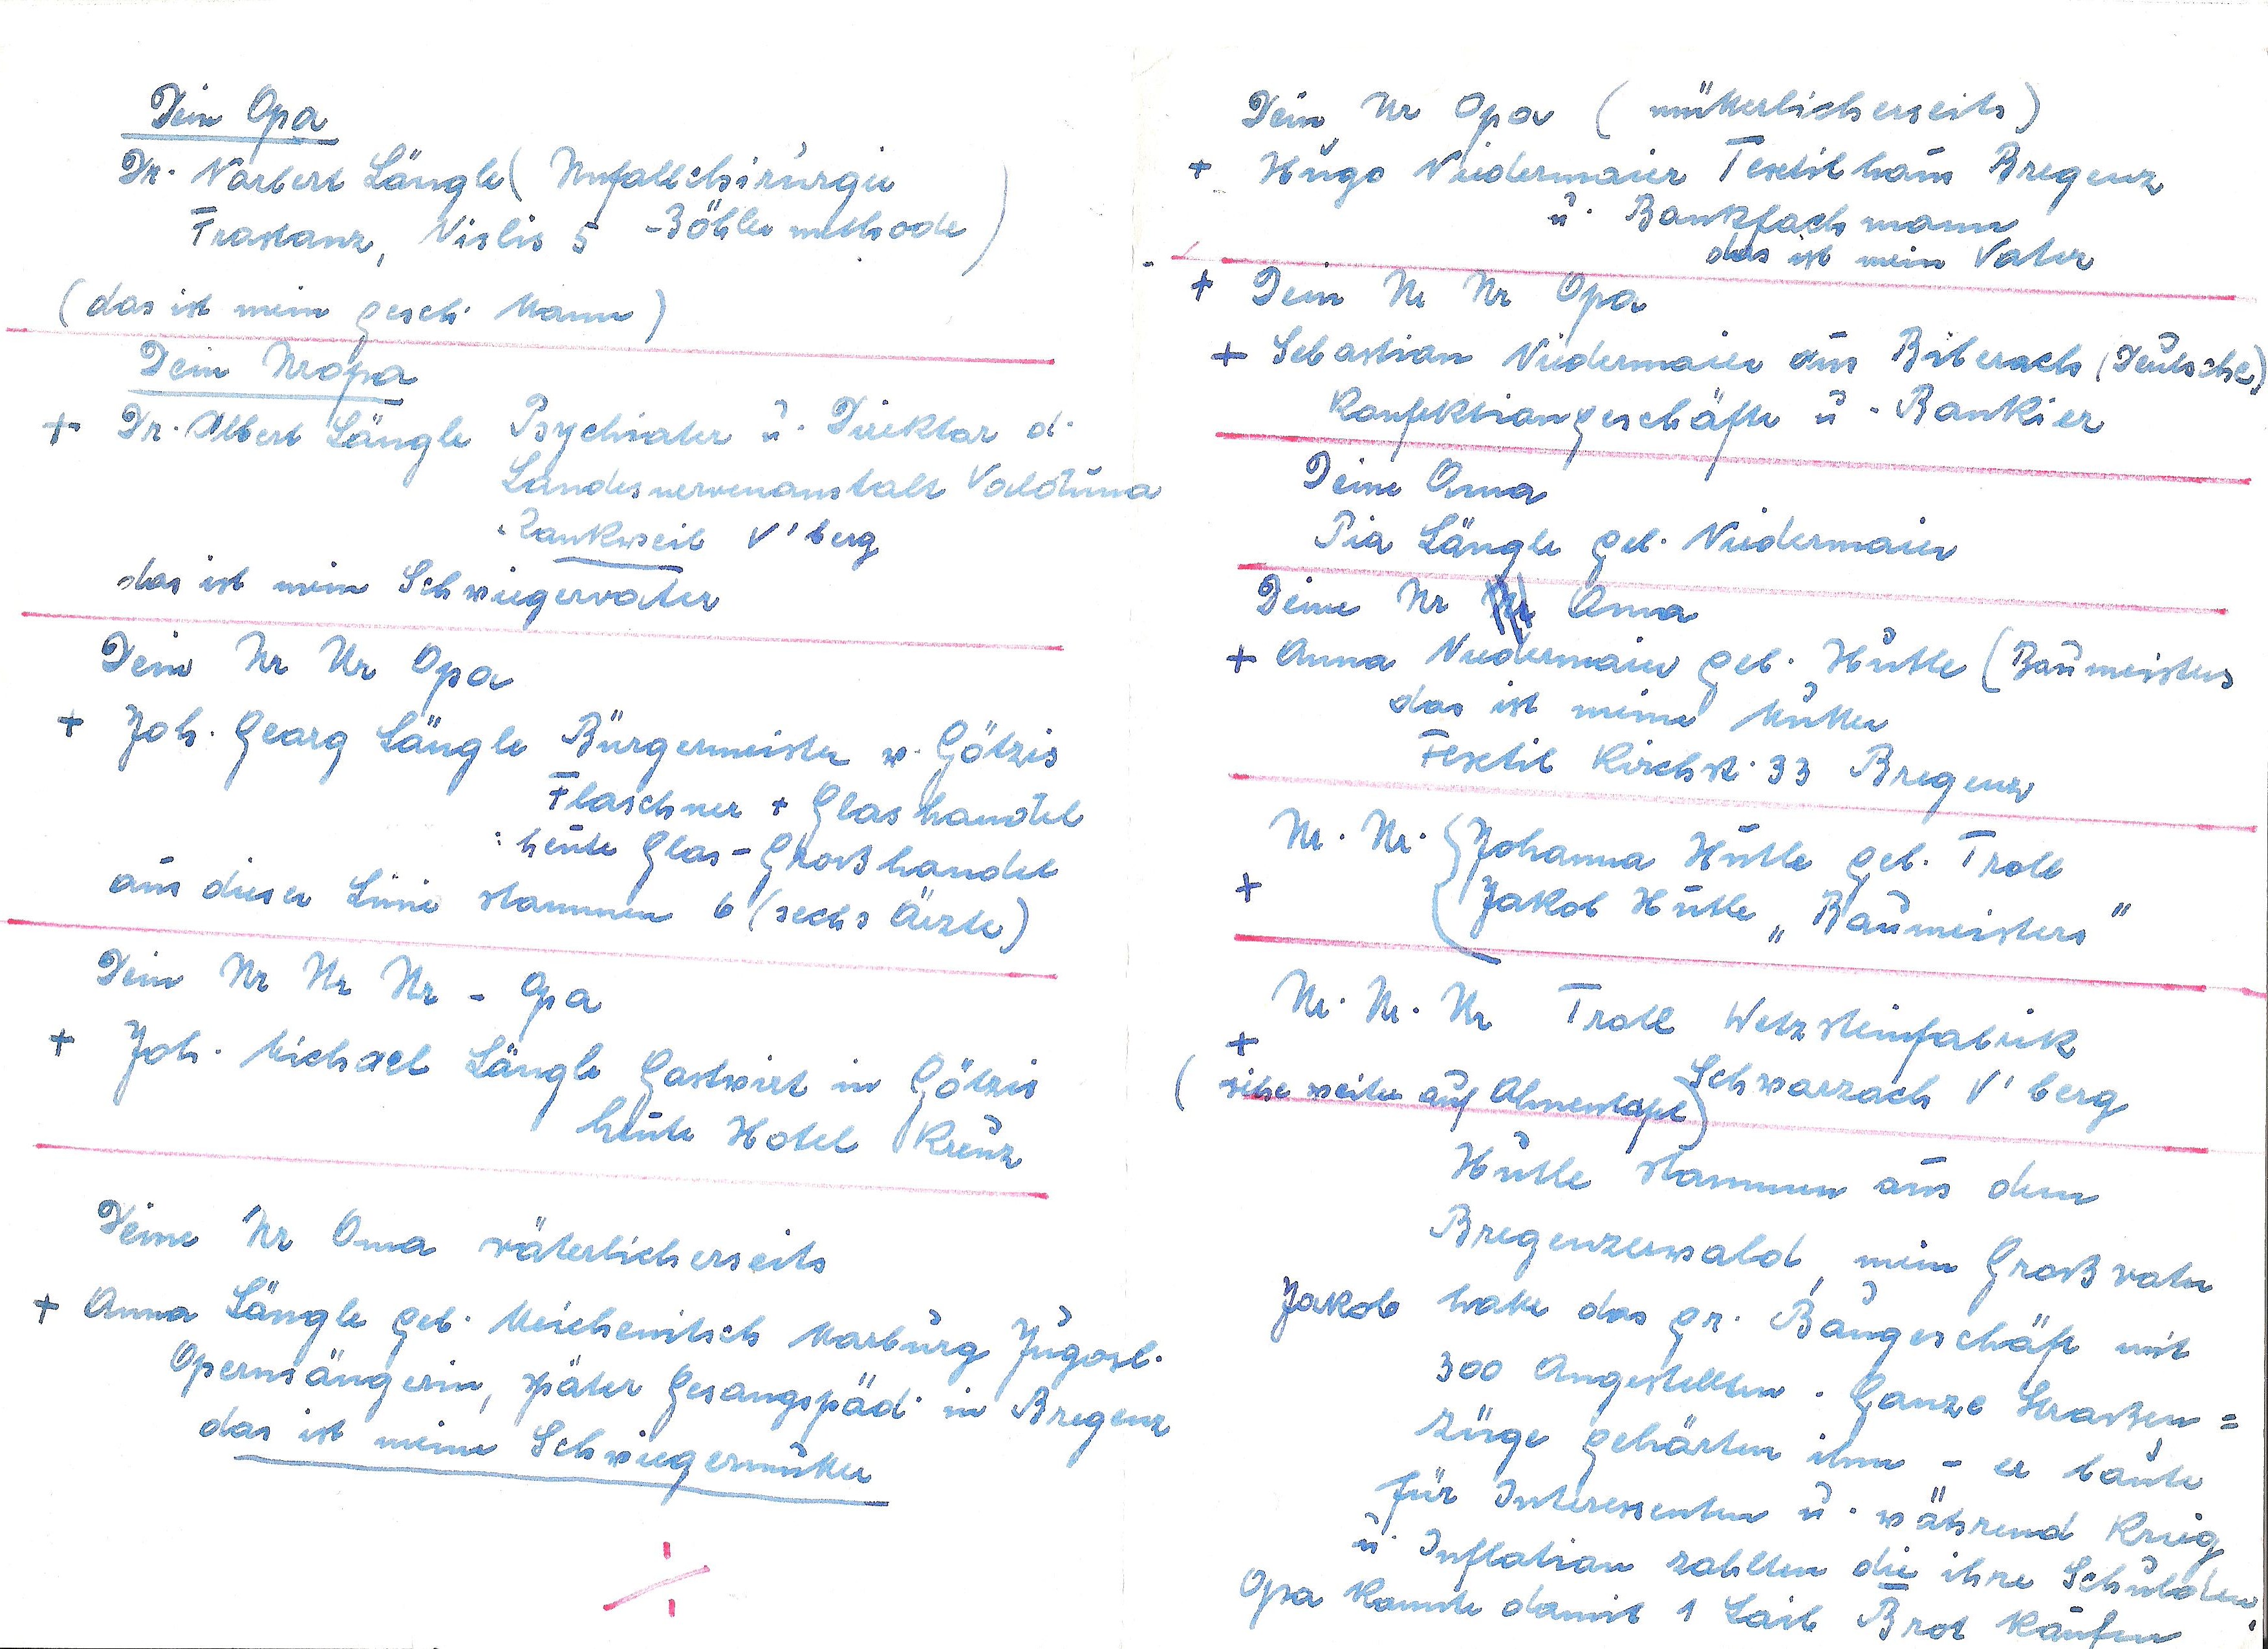 Dein Opa
Dr. Norbert Längle (Unfallchirurgie
Frastanz, Vislis 5 - Böhler methode)
(das ist mein gesch. Mann)
Dein Uropa
+ Dr. Albert Längle Psychiater u. Direktor d.
Landesnervenanstalt Valduna
Rankweil V'berg
das ist mein Schwiegervater
Dein Ur Ur Opa
+ Joh. Georg Längle Bürgermeister v. Götzis
Flaschner + Glashandel
: heute Glas-Großhandel
aus dieser Linie stammen 6 (sechs Ärzte)
Dein Ur Ur Ur - Opa
+ Joh. Michael Längle Gastwirt in Götzis
heute Hotel Kreuz
Deine Ur Oma väterlicherseits
+ Anna Längle geb. Meichenitsch Marburg Jugosl.
Opernsängerin, später Gesangspäd. in Bregenz
das ist meine Schwiegermutter
Dein Ur Opa (mütterlicherseits)
+ Hugo Niedermaier Textilhaus Bregenz
u. Bankfachmann
das ist mein Vater
+ Dein Ur Ur Opa
+ Sebastian Niedermaier aus Biberach (Deutsche)
Konfektiongeschäfte u. Bankier
Deine Oma
Pia Längle geb. Niedermaier
Deine Ur Oma
+ Anna Niedermaier geb. Hutle (Baumeisters
das ist meine Mutter
Textil Kirchst. 33 Bregenz
Ur. Ur. { Johanna Hutle geb. Troll
+ Jakob Hutle „Baumeisters"
Ur. Ur. Ur Troll Wetzsteinfabrik
+ Schwarzach V'berg
(siehe weiter auf Ahnentafel)
Hutle stammen aus dem
Bregenzerwald, mein Großvater
Jakob hatte das gr. Baugeschäft mit
300 Angestellten. Ganze Straßen=
züge gehörten ihm - er baute
für Interessenten u. während Krieg
u. Inflation zahlten die ihre Schulden,
Opa konnte damit 1 Laib Brot kaufen